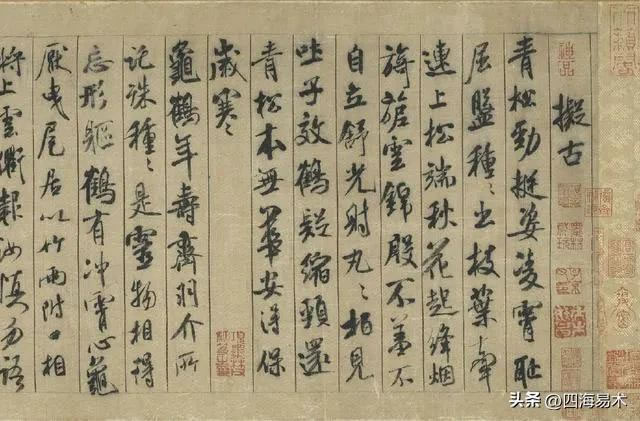 擬古
青松勁挺姿凌霄耻
屈盤種々出枝葉牽
連上松端秋花起絳烟
旖旎雲錦殷不羞不
自立舒光射丸々柏見
吐子效鶴疑縮頸還
青松本無華安得保
歲寒
龜鶴年壽齊羽介所
託殊種々是靈物相得
忘形軀鶴有冲霄心龜
厭曳尾居以竹兩附口相
將上雲衢報汝慎勿語
头条 @四海易术